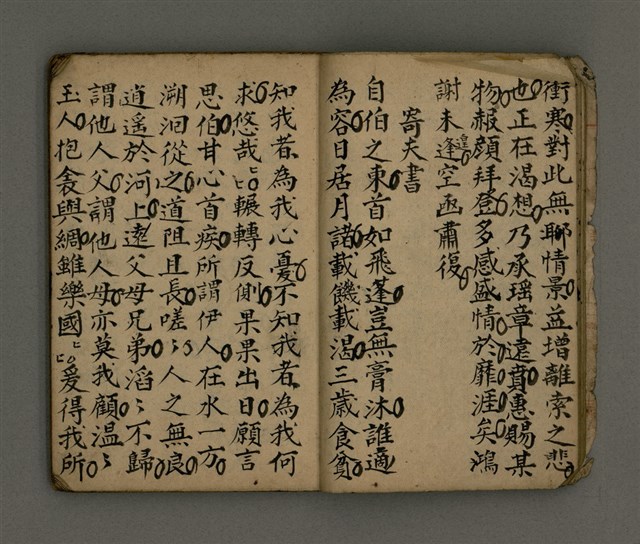 衝寒對此無聊情景益增離索之悲
也正在渴想乃承瑶章遠賁惠賜某
物赧顔拜登多感盛情於靡涯矣鴻
謝未逢空函肅復
遑
寄夫書
自伯之東首如飛蓬豈無膏沐誰適
為容日居月諸載饑載渴三歲食貧
知我者為我心憂不知我者為我何
求悠哉〻輾轉反側果果出日願言
思伯甘心首疾所謂伊人在水一方
溯洄從之道阻且長嗟〻人之無良
逍遥於河上遠父母兄弟滔〻不歸
謂他人父謂他人母亦莫我顧温〻
玉人抱衾與綢雖樂國〻爰得我所